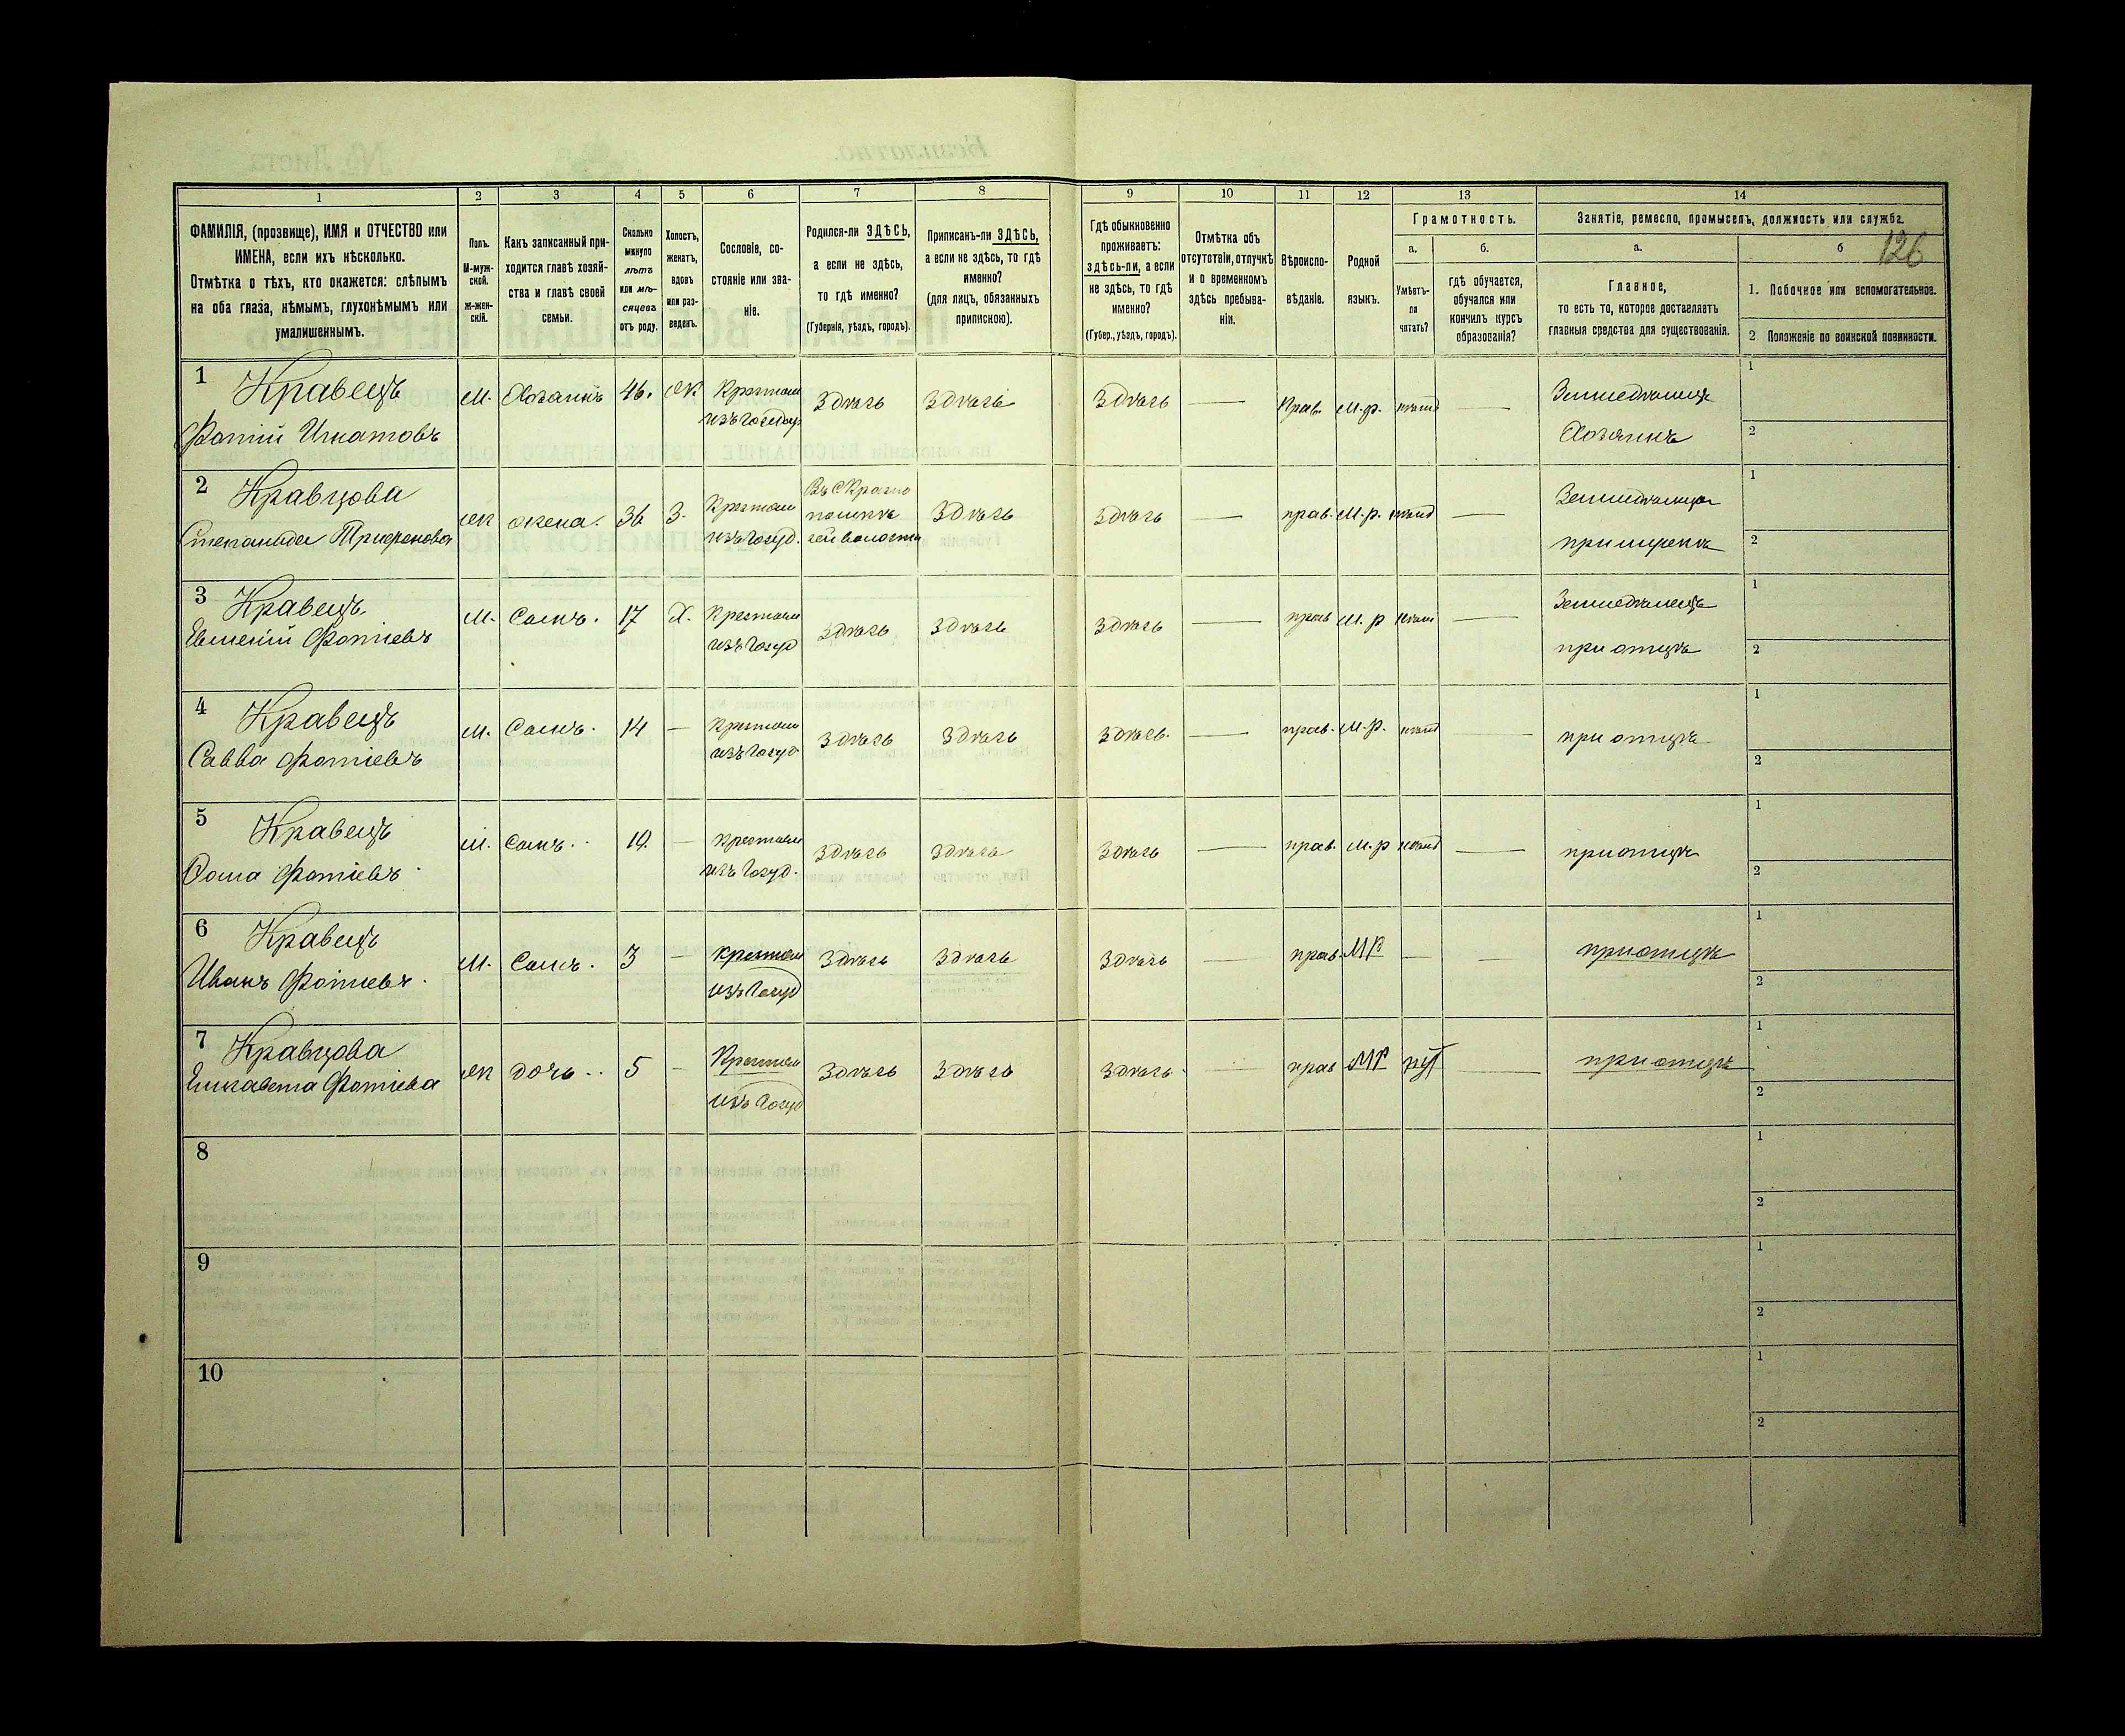 126
1 2 3 4 5 6 7 8 9 10 11 12 13 14
ФАМИЛІЯ, (прозвище), ИМЯ и ОТЧЕСТВО или
ИМЕНА, если ихъ нѣсколько.
Отмѣтка о тѣхъ, кто окажется: слѣпымъ
на оба глаза, нѣмымъ, глухонѣмымъ или
умалишеннымъ.
Полъ.
М-муж-
ской.
Ж-жен-
скій.
Какъ записанный при-
ходится главѣ хозяй-
ства и главѣ своей
семьи.
Сколько
минуло
лѣтъ
или мѣ-
сяцевъ
отъ роду.
Холостъ,
женатъ,
вдовъ
или раз-
веденъ.
Сословіе, со-
стояніе или зва-
ніе.
Родился-ли ЗДѢСЬ,
а если не здѣсь,
то гдѣ именно?
(Губернія, уѣздъ, городъ).
Приписанъ-ли ЗДѢСЬ,
а если не здѣсь, то гдѣ
именно?
(для лицъ, обязанныхъ
припискою).
Гдѣ обыкновенно
проживаетъ:
здѣсь-ли, а если
не здѣсь, то гдѣ
именно?
(Губер., уѣздъ, городъ).
Отмѣтка объ
отсутствіи, отлучкѣ
и о временномъ
здѣсь пребыва-
ніи.
Вѣроиспо-
вѣданіе.
Родной
языкъ.
Грамотность.
а.
Умѣетъ-
ли
читать?
б.
гдѣ обучается,
обучался или
кончилъ курсъ
образованія?
Занятіе, ремесло, промыселъ, должность или служба.
а.
Главное,
то есть то, которое доставляетъ
главныя средства для существованія.
б
1. Побочное или вспомогательное.
2 Положеніе по воинской повинности.
1 Кравецъ М. Хозяинъ 46. Ж Крестьян Здѣсь Здѣсь Здѣсь — Прав. М.р. — Земледѣлецъ 1
Фотій Игнатовъ изъ Госуд Хозяинъ 2
2 Кравцова Ж жена. 36 З. Крестьян Въ С Красно Здѣсь Здѣсь — прав. М.р. — 1
Степанида Трифонова изъ Госуд. волости 2
3 Кравецъ. М. Сынъ. 17 Х. Крестьян Здѣсь Здѣсь Здѣсь — прав М.р — Земледѣлецъ 1
Евгеній Фотіевъ изъ Госуд при отцѣ 2
4 Кравецъ М. Сынъ. 14 — Крестьян Здѣсь Здѣсь Здѣсь. — прав. М.р. — при отцѣ 1
Савва Фотіевъ изъ Госуд 2
5 Кравецъ М. Сынъ. — Крестьян Здѣсь Здѣсь Здѣсь — прав. М.р — при отцѣ 1
Фотіевъ изъ Госуд. 2
6 Кравецъ М. Сынъ. 3 — Крестьян Здѣсь Здѣсь Здѣсь — прав. МР — — при отцѣ 1
Иванъ Фотіевъ. изъ Госуд 2
7 Кравцова Ж дочь 5 — Крестьян Здѣсь Здѣсь Здѣсь — прав МР — при отцѣ 1
Елизавета Фотіева изъ Госуд 2
8 1
2
9 1
2
10 1
2